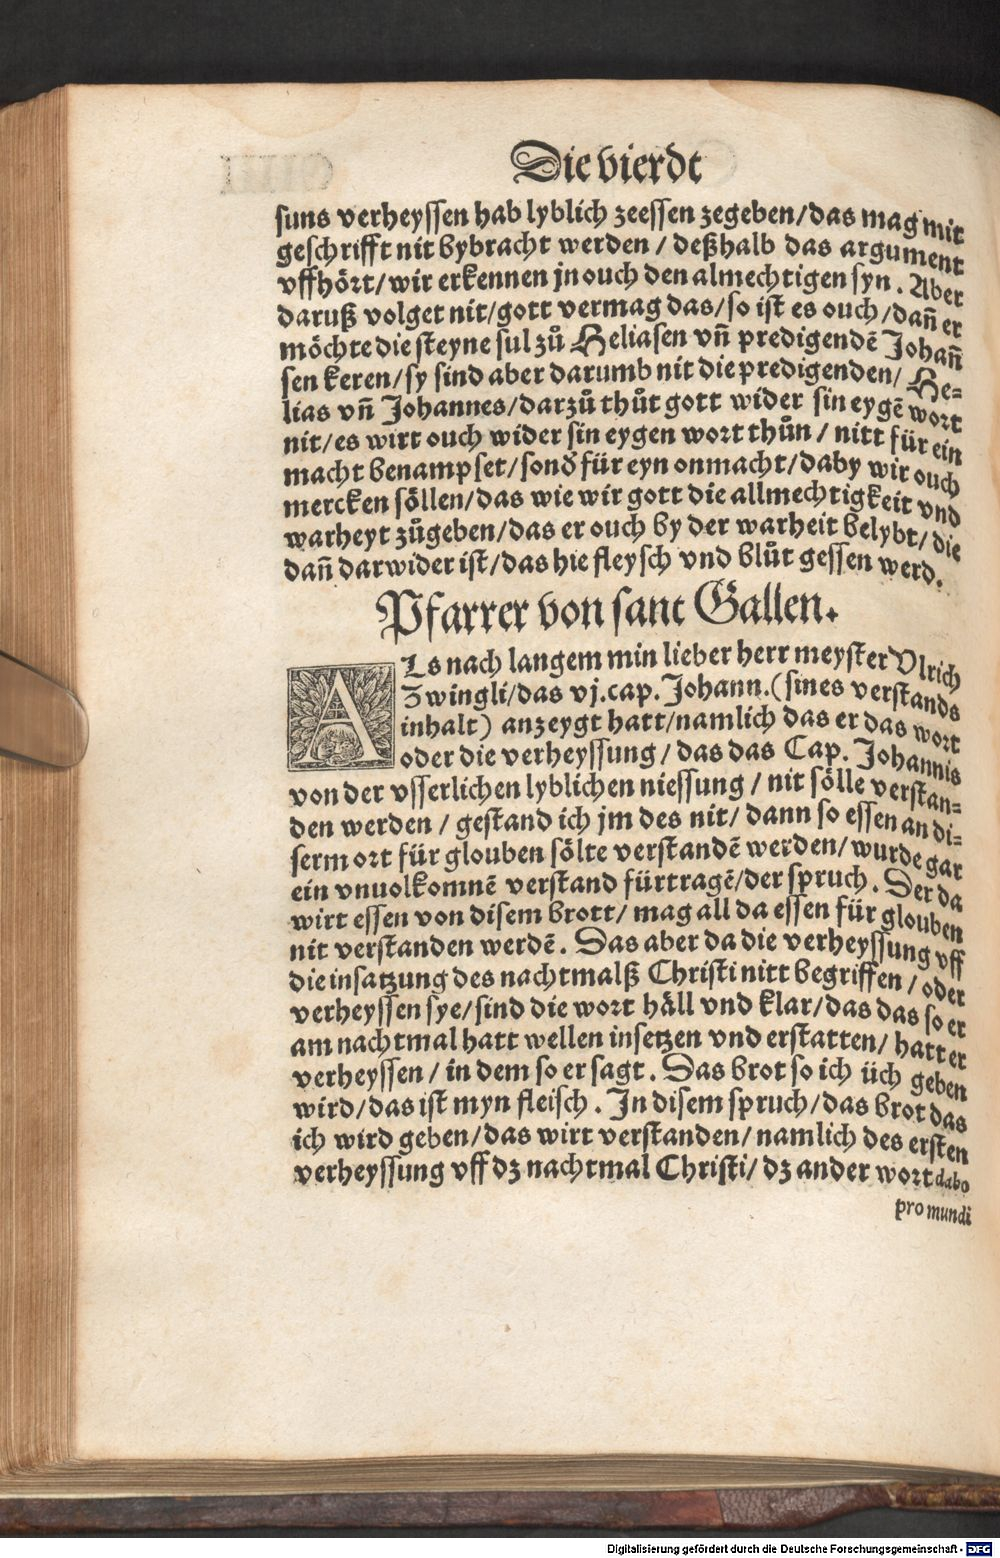 Die vierdt
suns verheyssen hab lyblich zeessen zegeben/das mag mit
geschrifft nit bybracht werden / deßhalb das argument
vffhört/wir erkennen jn ouch den almechtigen syn. Aber
daruß volget nit/gott vermag das/so ist es ouch/dañ er
möchte die steyne sul zů Heliasen vñ predigendē Johañ
sen keren/sy sind aber darumb nit die predigenden/ He=
lias vñ Johannes/darzů thůt gott wider sin eygē wort
nit/es wirt ouch wider sin eygen wort thůn / nitt für ein
macht benampset/sond̄ für eyn onmacht/daby wir ouch
mercken söllen/das wie wir gott die allmechtigkeit vnd
warheyt zůgeben/das er ouch by der warheit belybt/ die
dañ darwider ist/das hie fleysch vnd blůt gessen werd.
Pfarrer von sant Gallen.
ALs nach langem min lieber herr meyster Vlrich
Zwingli/das vj.cap. Johann.(sines verstands
inhalt) anzeygt hatt/namlich das er das wort
oder die verheyssung / das das Cap. Johannis
von der vsserlichen lyblichen niessung / nit sölle verstan=
den werden / gestand ich jm des nit/ dann so essen an di=
serm ort für glouben sölte verstandē werden/ wurde gar
ein vnuolkomnē verstand fürtragē/der spruch. Der da
wirt essen von disem brott/ mag all da essen für glouben
nit verstanden werdē. Das aber da die verheyssung vff
die insatzung des nachtmalß Christi nitt begriffen / oder
verheyssen sye/sind die wort häll vnd klar/das das so er
am nachtmal hatt wellen insetzen vnd erstatten/ hatt er
verheyssen / in dem so er sagt. Das brot so ich üch geben
wird/das ist myn fleisch. In disem spruch/das brot das
ich wird geben/das wirt verstanden/ namlich des ersten
verheyssung vff dz nachtmal Christi/ dz ander wort dabo
pro mundi
Digitalisierung gefördert durch die Deutsche Forschungsgemeinschaft - DFG